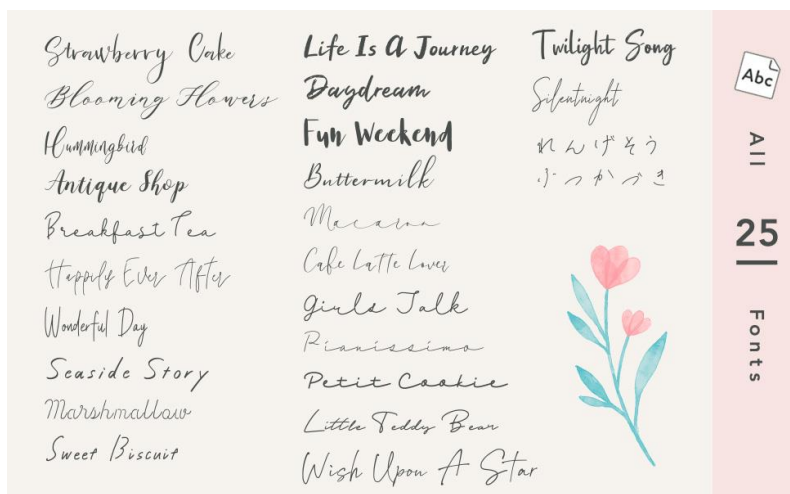 Strawberry Cake
Blooming Flowers
Hummingbird
Antique Shop
Breakfast Tea
Happily Ever After
Wonderful Day
Seaside Story
Marshmallow
Sweet Biscuit
Life Is A Journey
Daydream
Fun Weekend
Buttermilk
Macaron
Cafe Latte Lover
Girls Talk
Pianissimo
Petit Cookie
Little Teddy Bear
Wish Upon A Star
Twilight Song
Silentnight
れんげそう
ふつかづき
Abc
All
25
Fonts